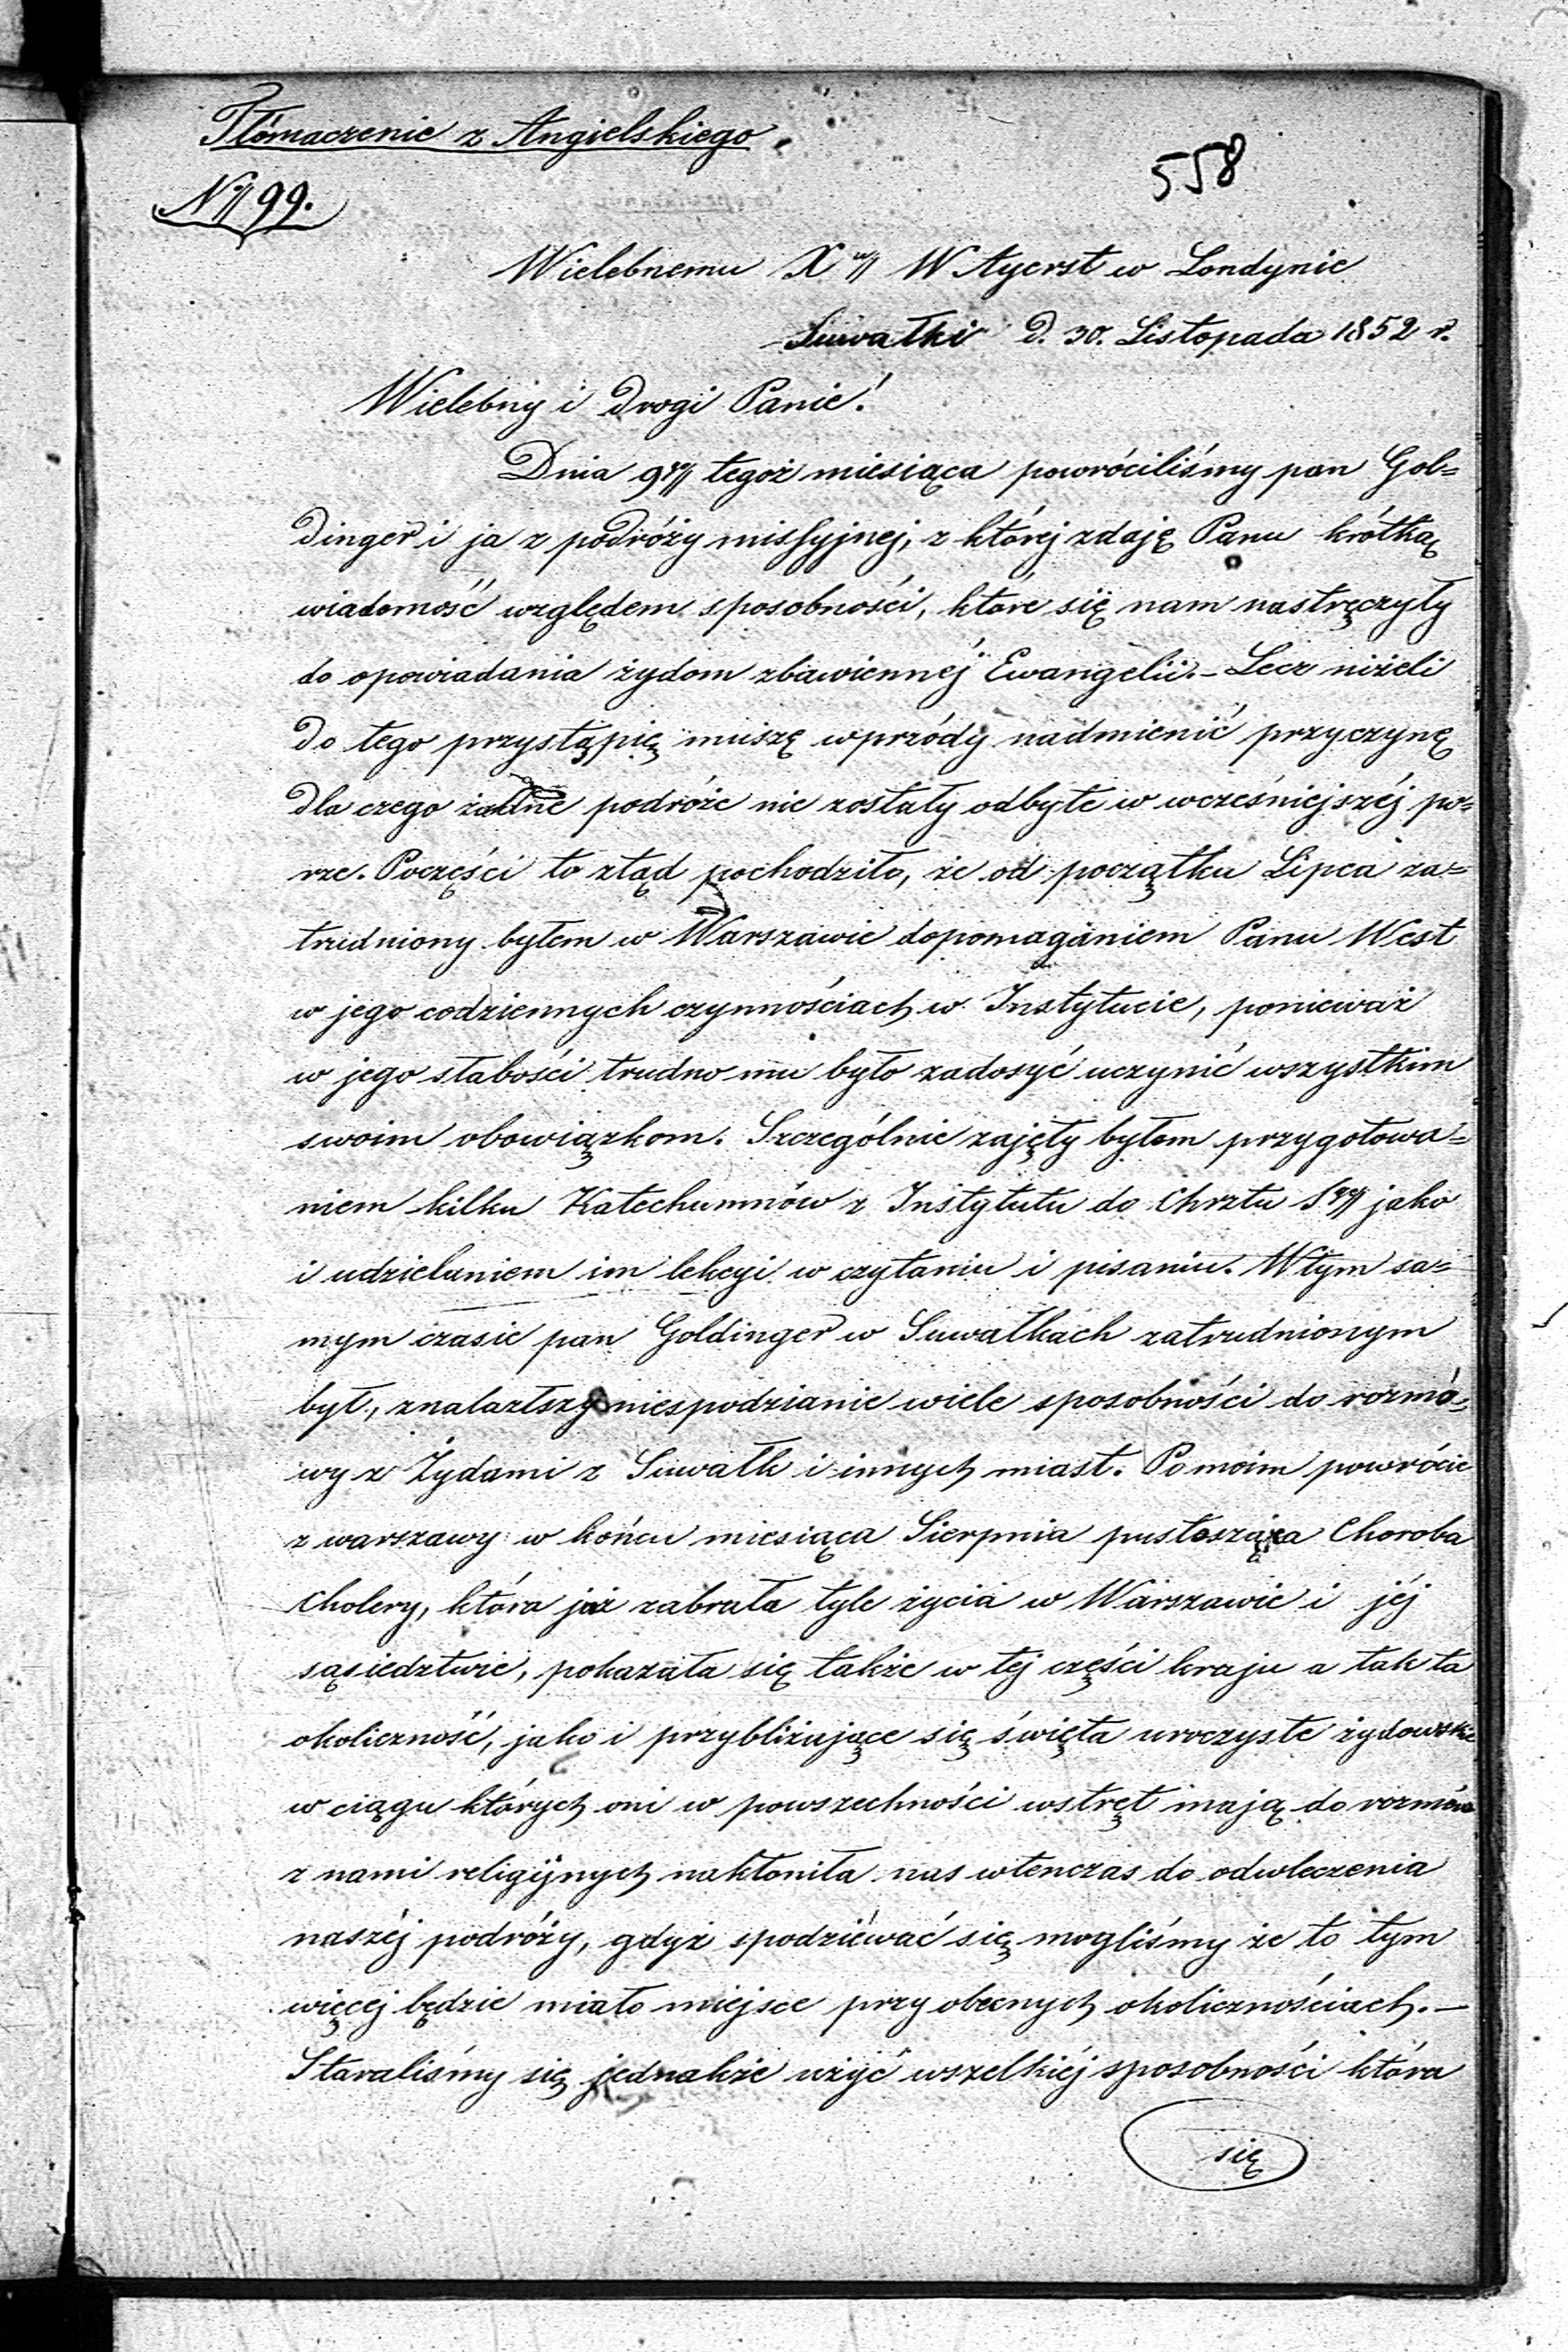 Tłómaczenie z Angielskiego
558
N 99.
Wielebnemu X W Ayerst w Londynie
Suwałki d. 30. Listopada 1852 r.
Wielebny i Drogi Panie!
Dnia 9go tegoż miesiąca powróciliśmy pan Gol=
dinger i ja z podróży missyjnej, z której zdaję Panu krótką
wiadomość względem sposobności, które się nam nastręczyły
do opowiadania żydom zbawiennéj Ewangelii.- Lecz niżeli
do tego przystąpię muszę wprzódy nadmienić przyczynę
dla czego żadne podróże nie zostały odbyte w wcześniejszéj po=
rze. Poczęści to ztąd pochodziło, że od początku Lipca za=
trudniony byłem w Warszawie dopomaganiem Panu West
w jego codziennych czynnościach w Instytucie, ponieważ
w jego słabości trudno mu było zadosyć uczynić wszystkim
swoim obowiązkom. Szczególnie zajęty byłem przygotowa=
niem kilku Katechumnów z Instytutu do Chrztu Sgo jako
i udzielaniem im lekcyi w czytaniu i pisaniu. W tym sa=
mym czasie pan Goldinger w Suwałkach zatrudnionym
był, znalazłszy niespodzianie wiele sposobności do rozmó=
wy z Żydami z Suwałk i innych miast. Po moim powrócie
z warszawy w końcu miesiąca Sierpnia pustosząca Choroba
Cholery, która już zabrała tyle życia w Warszawie i jéj
sąsiedztwie, pokazała się także w tej części kraju a tak ta
okoliczność, jako i przybliżujące się święta uroczyste żydowskie
w ciągu których oni w powszechności wstręt mają do rozmów
z nami religijnych nakłoniła nas wtenczas do odwleczenia
naszéj podróży, gdyż spodziéwać się mogliśmy że to tym
więcej będzie miało miejsce przy obecnych okolicznościach.—
Staraliśmy się jednakże użyć wszelkiéj sposobności która
się